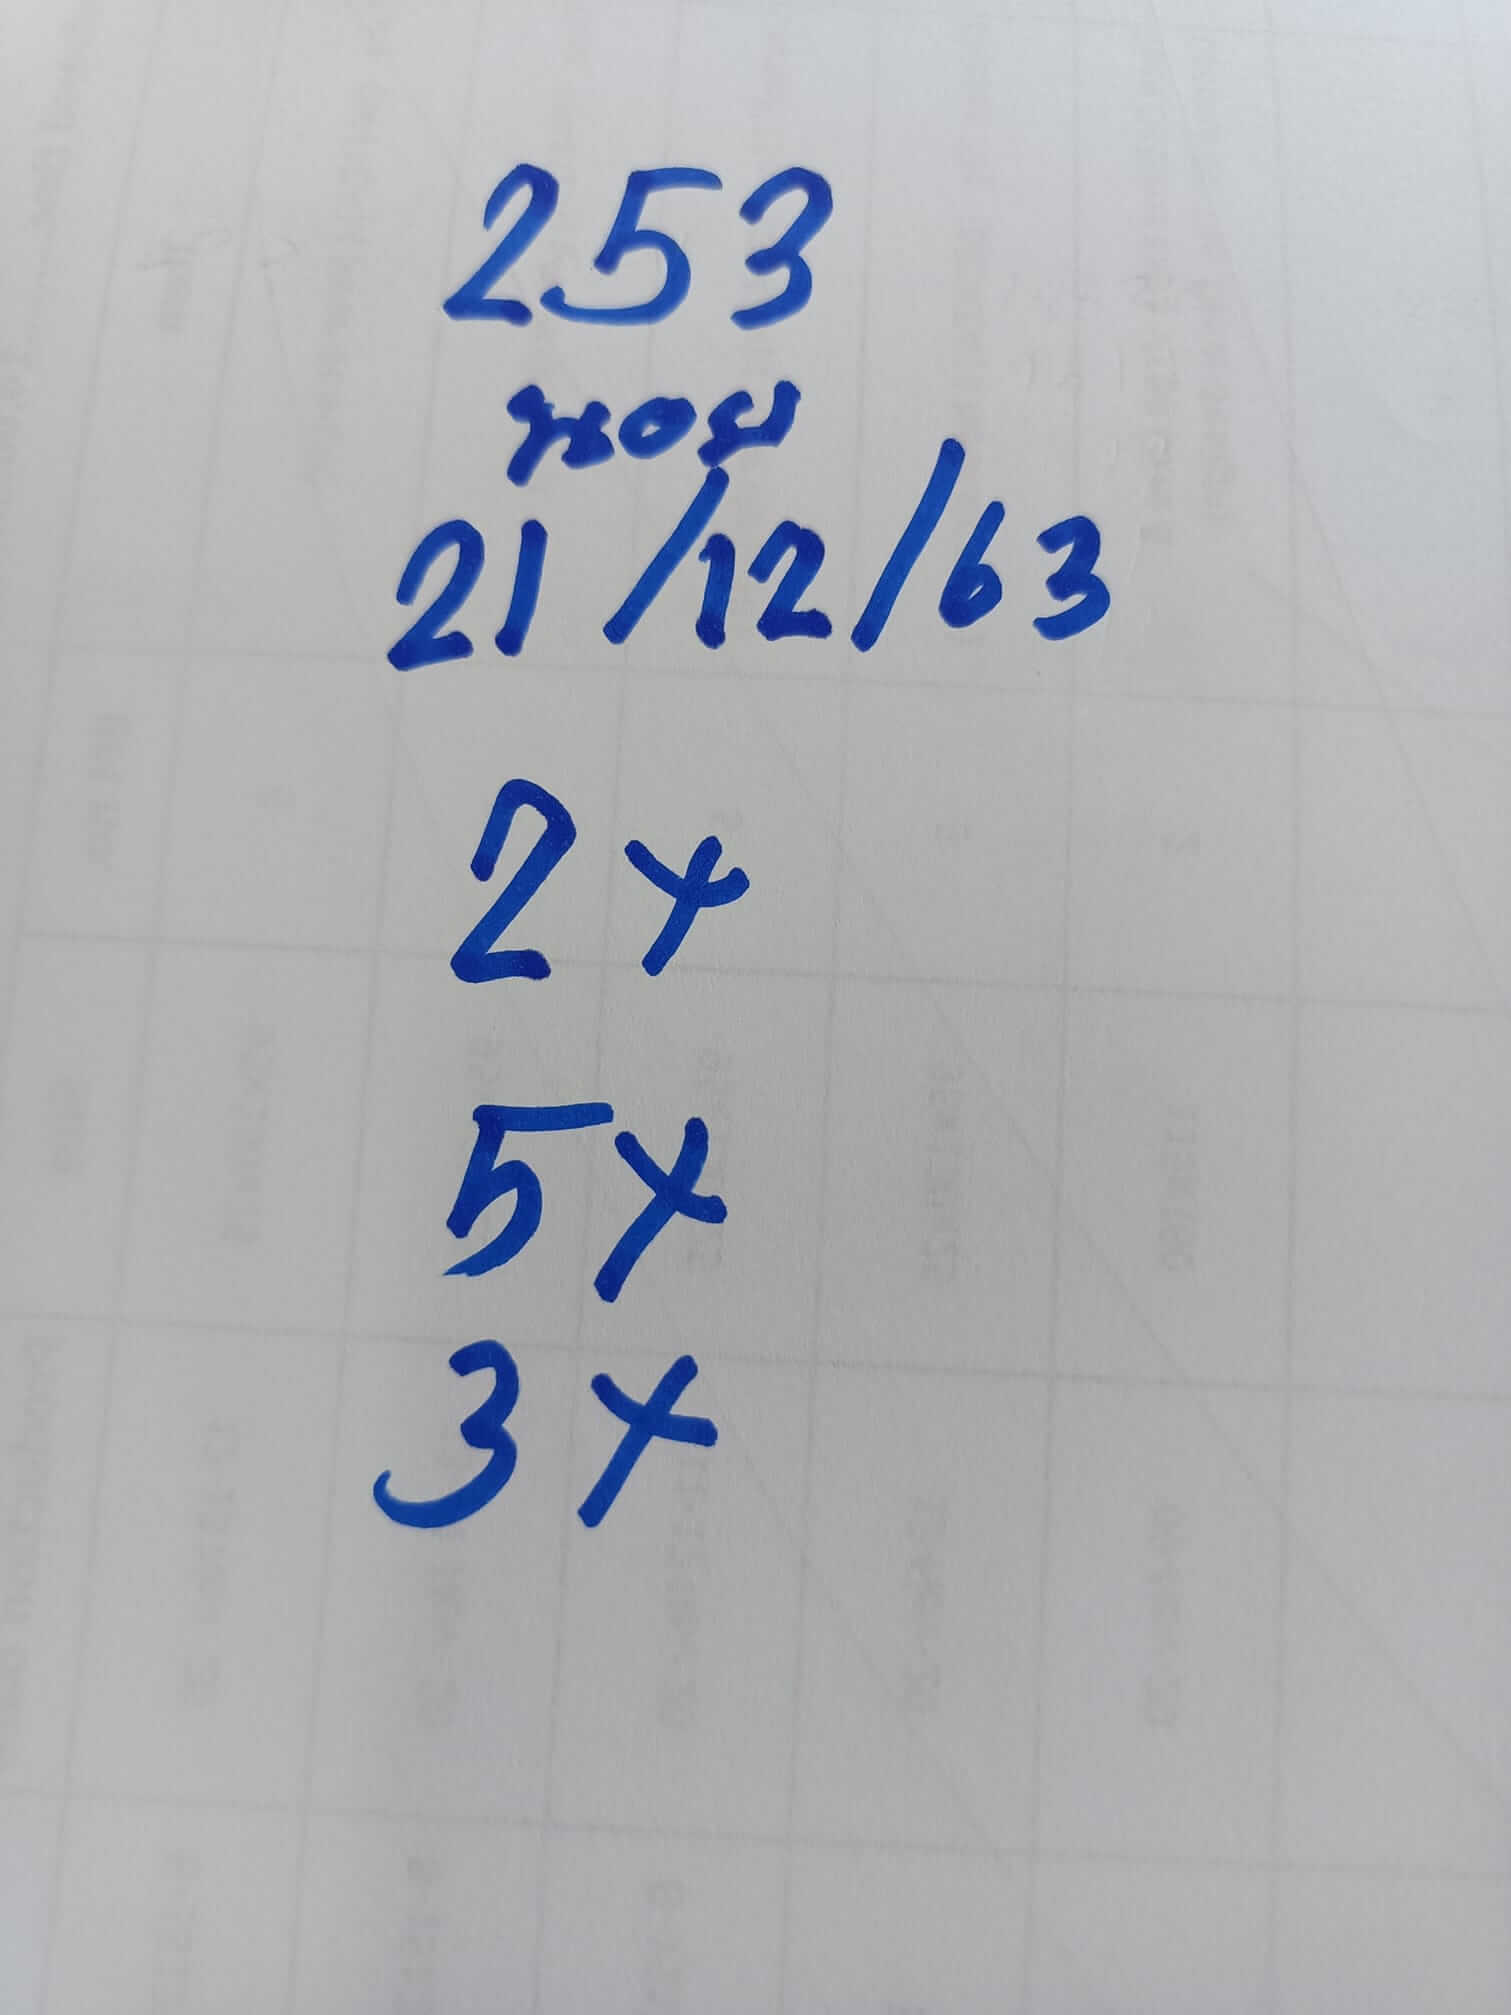 253
นอย
21/12/63
2x
5x
3x